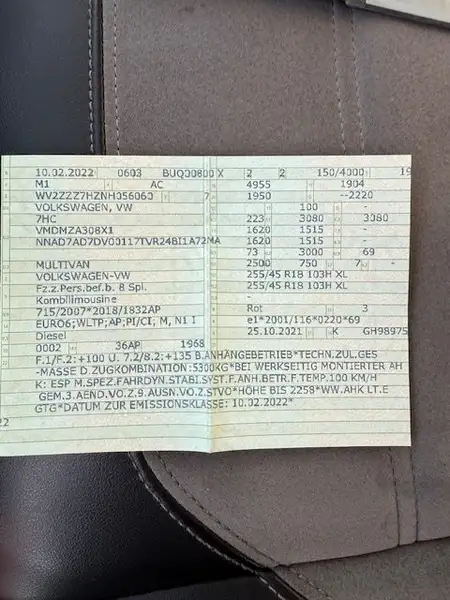 10.02.2022 0603 BUQ00800 X 2 2 150/4000 19
M1 AC 4955 1904
WV2ZZZ7HZNH056060 7 1950 --2220
VOLKSWAGEN, VW 100 -
7HC 223 3080 3080
VMDMZA308X1 1620 1515 -
NNAD7AD7DV00117TVR24BI1A72MA 1620 1515 -
73 3000 69
MULTIVAN 2500 750 7 -
VOLKSWAGEN-VW 255/45 R18 103H XL
Fz.z.Pers.bef.b. 8 Spl. 255/45 R18 103H XL
Kombilimousine -
715/2007*2018/1832AP Rot 3
EURO6;WLTP;AP;PI/CI; M, N1 I e1*2001/116*0220*69
Diesel 25.10.2021 K GH98975
0002 36AP 1968
F.1/F.2:+100 U. 7.2/8.2:+135 B.ANHÄNGEBETRIEB*TECHN.ZUL.GES
-MASSE D.ZUGKOMBINATION:5300KG*BEI WERKSEITIG MONTIERTER AH
K: ESP M.SPEZ.FAHRDYN.STABI.SYST.F.ANH.BETR.F.TEMP.100 KM/H
GEM.3.AEND.VO.Z.9.AUSN.VO.Z.STVO*HÖHE BIS 2258*WW.AHK LT.E
GTG*DATUM ZUR EMISSIONSKLASSE: 10.02.2022*
22